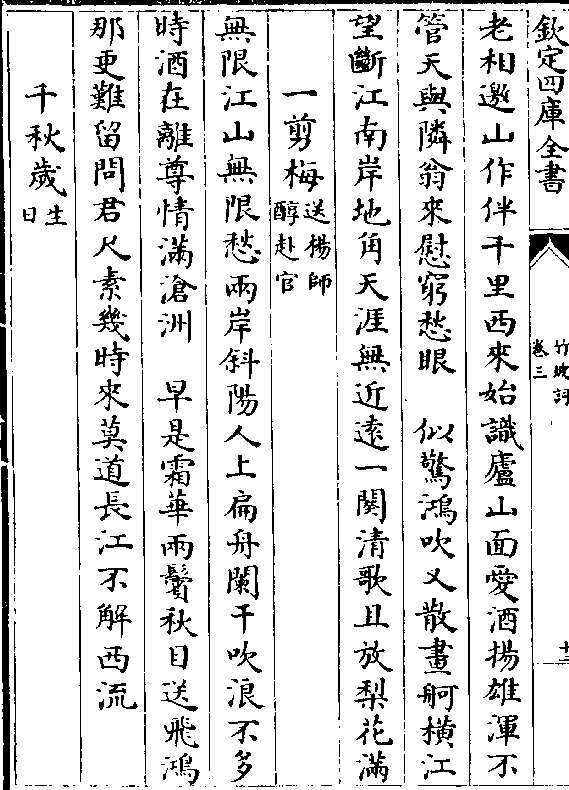 欽定四庫全書
竹坡詞
卷三
十三
老相邀山作伴千里西來始識廬山面愛酒揚雄渾不
管天與隣翁來慰窮愁眼　似驚鴻吹又散畫舸横江
望斷江南岸地角天涯無近逺一闋清歌且放梨花滿
一剪梅送楊師醇赴官
無限江山無限愁兩岸斜陽人上扁舟闌干吹浪不多
時酒在離尊情滿滄洲　早是霜華兩鬢秋目送飛鴻
那更難留問君尺素幾時來莫道長江不解西流
千秋歲生日